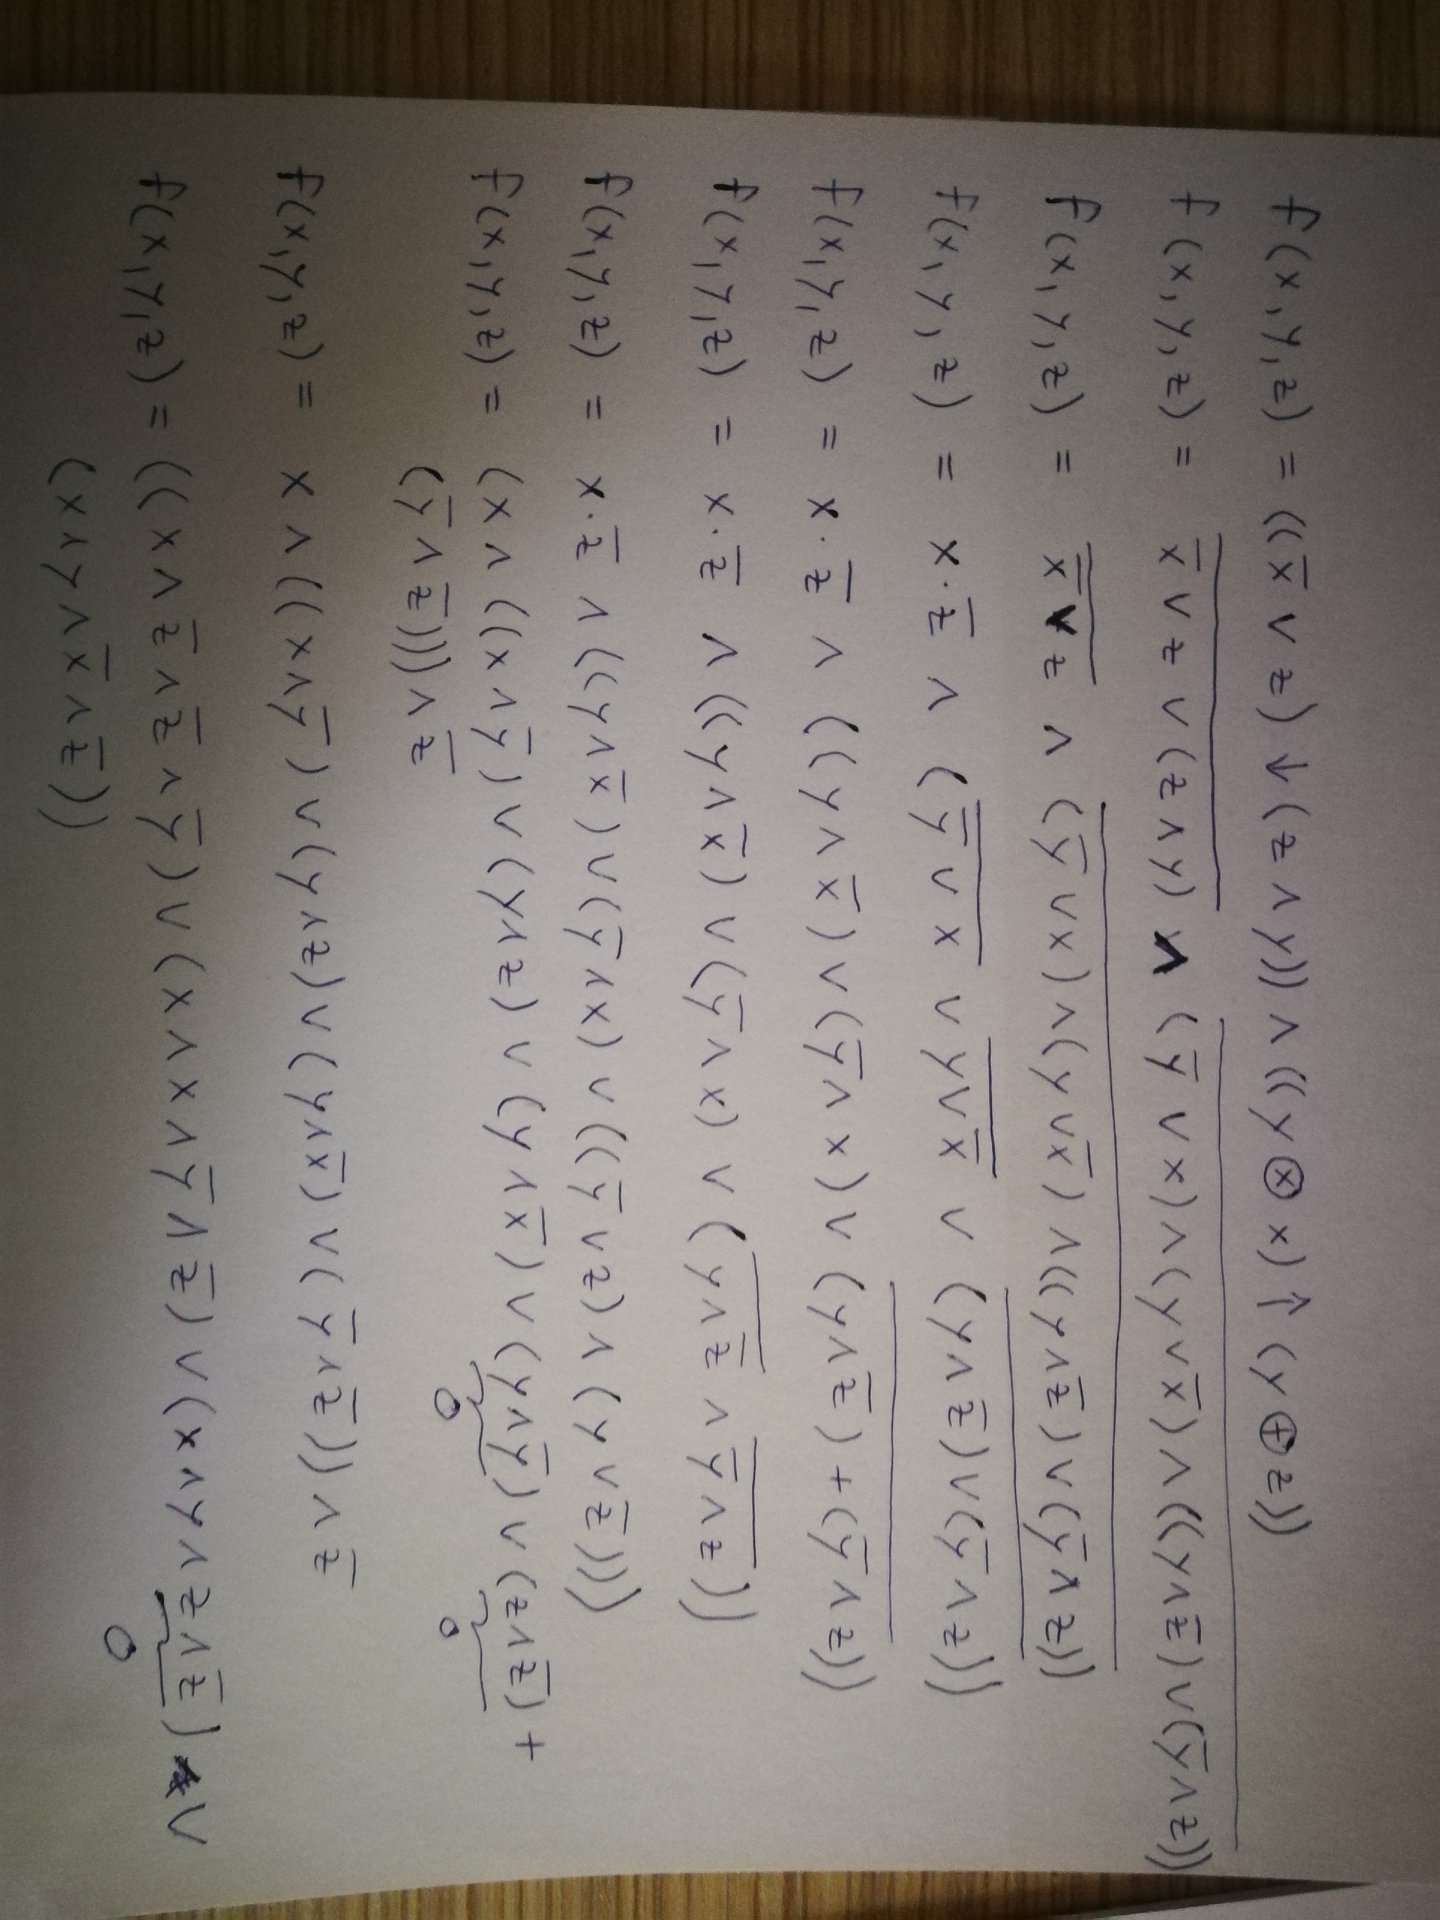 f(x,y,z) = ((x̅ ∨ z) ↓ (z ∧ y)) ∧ ((y ⊗ x) ↑ (y ⊕ z))
f(x,y,z) = x̅ ∨ z ∨ (z ∧ y) ∧ (y̅ ∨ x) ∧ (y ∨ x̅) ∧ ((y ∧ z̅) ∨ (y̅ ∧ z)))
f(x,y,z) = x̅ ∨ z ∧ (y̅ ∨ x) ∧ (y ∨ x̅) ∧ ((y ∧ z̅) ∨ (y̅ ∧ z)))
f(x,y,z) = x · z̅ ∧ (y̅ ∨ x ∨ y ∨ x̅ ∨ (y ∧ z̅) ∨ (y̅ ∧ z))
f(x,y,z) = x · z̅ ∧ ((y ∧ x̅) ∨ (y̅ ∧ x) ∨ (y ∧ z̅) + (y̅ ∧ z))
f(x,y,z) = x · z̅ ∧ ((y ∧ x̅) ∨ (y̅ ∧ x) ∨ (y ∧ z̅ ∧ y̅ ∧ z))
f(x,y,z) = x · z̅ ∧ ((y ∧ x̅) ∨ (y̅ ∧ x) ∨ ((y̅ ∨ z) ∧ (y ∨ z̅)))
f(x,y,z) = (x ∧ ((x ∧ y̅) ∨ (y ∧ z) ∨ (y ∧ x̅) ∨ (y ∧ y̅) ∨ (z ∧ z̅) +
0 0
(y̅ ∧ z̅))) ∧ z̅
f(x,y,z) = x ∧ ((x ∧ y̅) ∨ (y ∧ z) ∨ (y ∧ x̅) ∨ (y̅ ∧ z̅)) ∧ z̅
f(x,y,z) = ((x ∧ z̅ ∧ z̅ ∧ y̅) ∨ (x ∧ x ∧ y̅ ∧ z̅) ∨ (x ∧ y ∧ z ∧ z̅) ∨
0
(x ∧ y ∧ x̅ ∧ z̅))